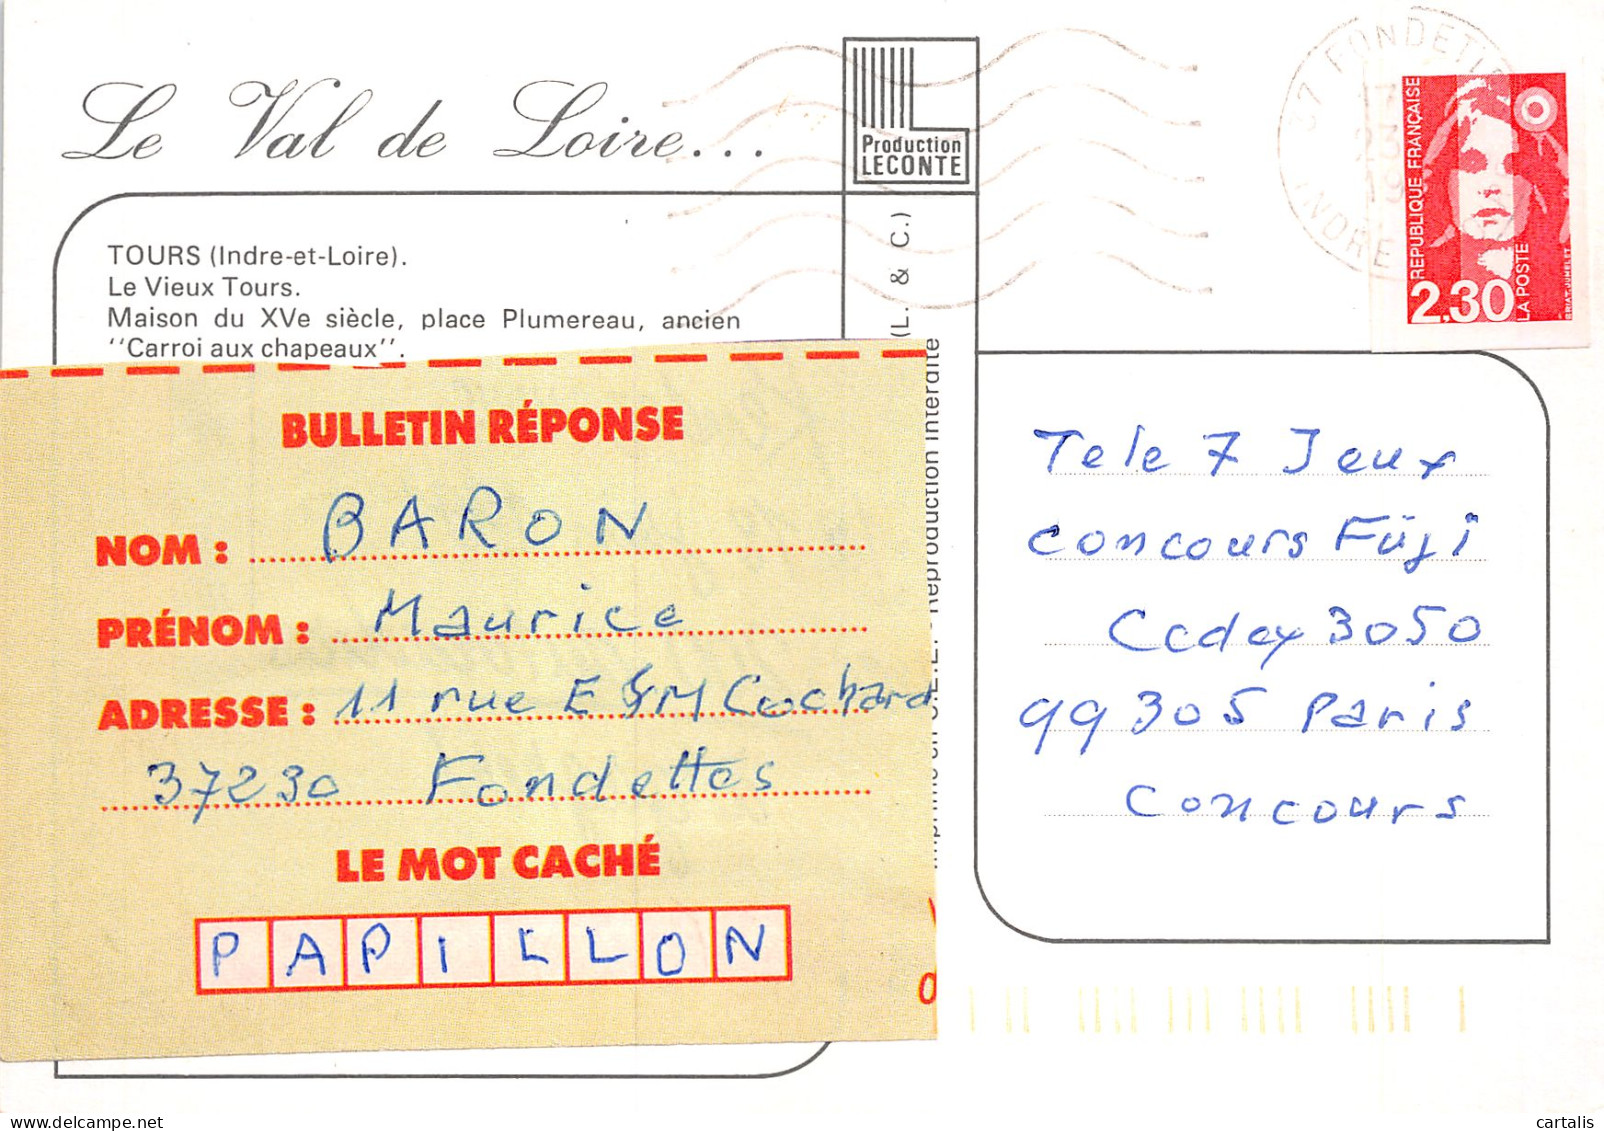 Le Val de Loire...
Production
LECONTE
37 FONDETT
23
19
INDRE
REPUBLIQUE FRANÇAISE
2,30
LA POSTE
BRIAT-JUMELET
TOURS (Indre-et-Loire).
Le Vieux Tours.
Maison du XVe siècle, place Plumereau, ancien
''Carroi aux chapeaux''.
(L. & C.)
Reproduction interdite
BULLETIN RÉPONSE
NOM : BARON
PRÉNOM : Maurice
ADRESSE : 11 rue E & M Cochard
37230 Fondettes
LE MOT CACHÉ
PAPILLON
Tele 7 Jeux
concours Fuji
Cedex 3050
99305 Paris
Concours
cartalis